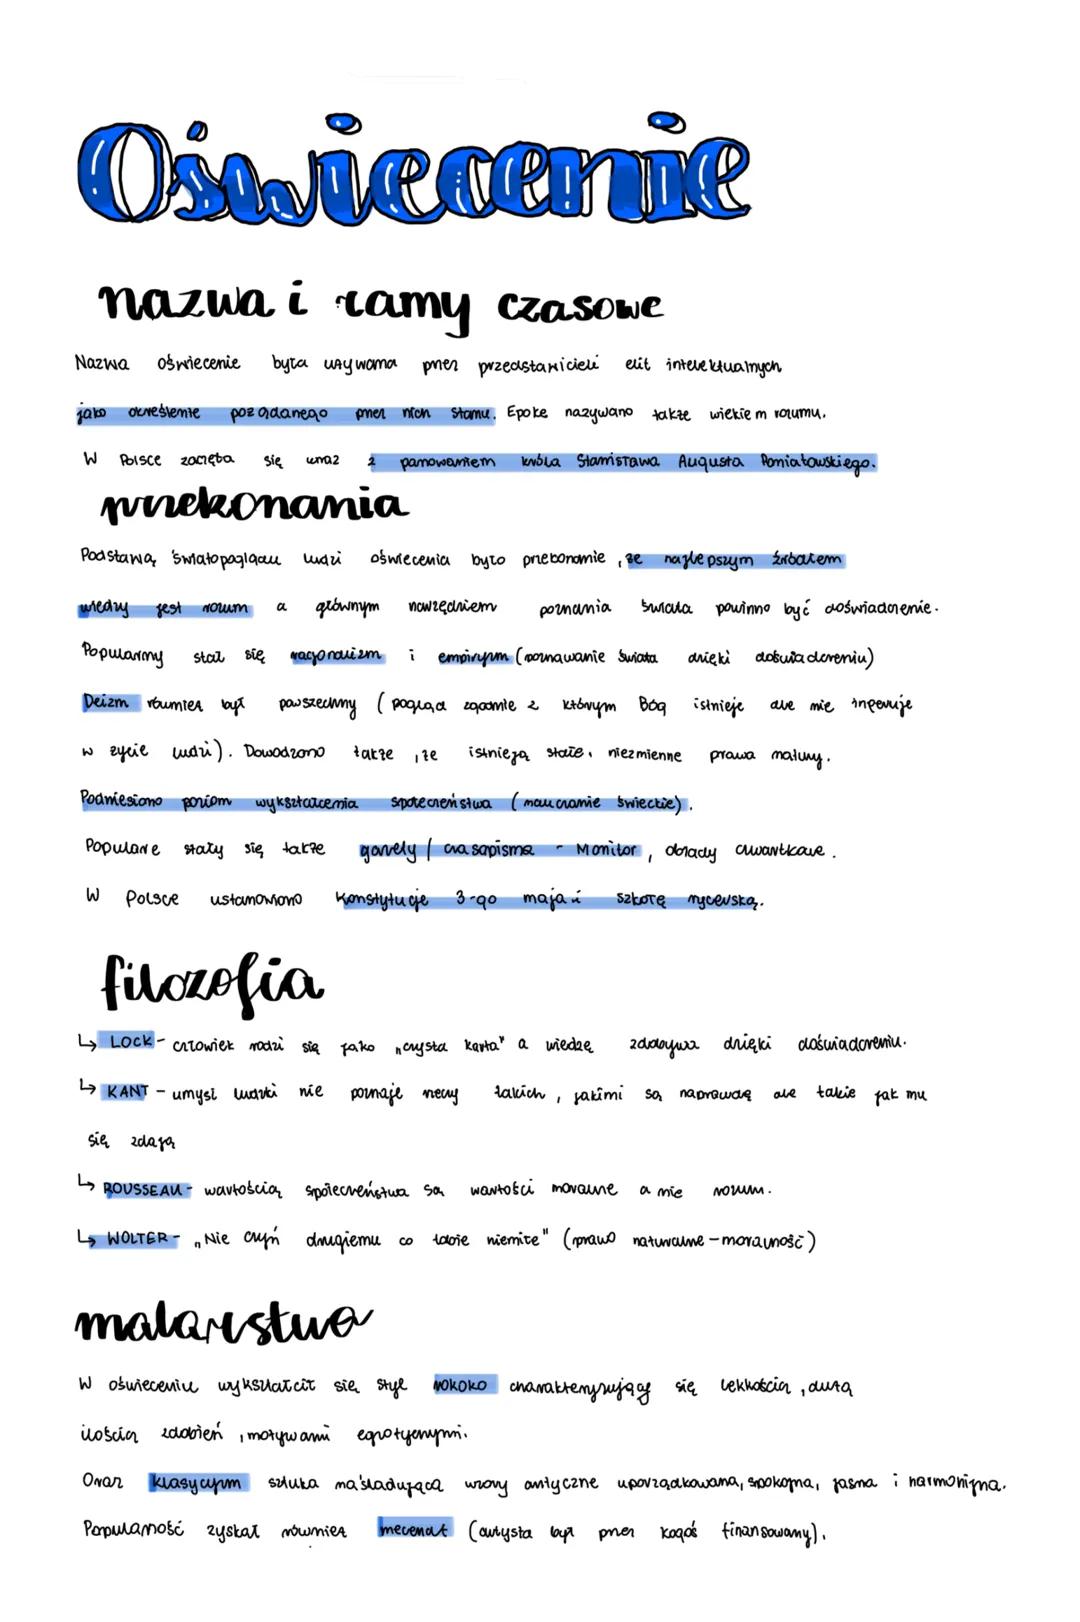 Oświecenie
nazwa i ramy czasowe
Nazwa oświecenie była używana przez przedstawicieli elit intelektualnych
jako określenie pożądanego przez nich stanu. Epokę nazywano także wiekiem rozumu.
W Polsce zaczęła się wraz z panowaniem króla Stanisława Augusta Poniatowskiego.
przekonania
Podstawą światopoglądu ludzi oświecenia było przekonanie, że najlepszym źródłem
wiedzy jest rozum a głównym narzędziem poznania świata powinno być doświadczenie.
Popularny stał się racjonalizm i empiryzm (poznawanie świata dzięki doświadczeniu)
Deizm również był powszechny (pogląd zgodnie z którym Bóg istnieje ale nie ingeruje
w życie ludzi). Dowodzono także, że istnieją stałe, niezmienne prawa natury.
Podniesiono poziom wykształcenia społeczeństwa (nauczanie świeckie).
Populare stały się także gazety / czasopisma - Monitor, obiady czwartkowe.
W Polsce ustanowiono Konstytucję 3-go maja i szkołę rycerską.
filozofia
↳ LOCK - człowiek rodzi się jako „czysta karta" a wiedzę zdobywa dzięki doświadczeniu.
↳ KANT - umysł ludzki nie poznaje rzeczy takich, jakimi są naprawdę ale takie jak mu
się zdają
↳ ROUSSEAU - wartością społeczeństwa są wartości moralne a nie rozum.
↳ WOLTER - „Nie czyń drugiemu co tobie niemiłe" (prawo naturalne - moralność)
malarstwo
W oświeceniu wykształcił się styl rokoko charakteryzujący się lekkością, dużą
ilością zdobień, motywami egzotycznymi.
Oraz klasycyzm sztuka naśladująca wzory antyczne uporządkowana, spokojna, jasna i harmonijna.
Popularność zyskał również mecenat (artysta był przez kogoś finansowany).